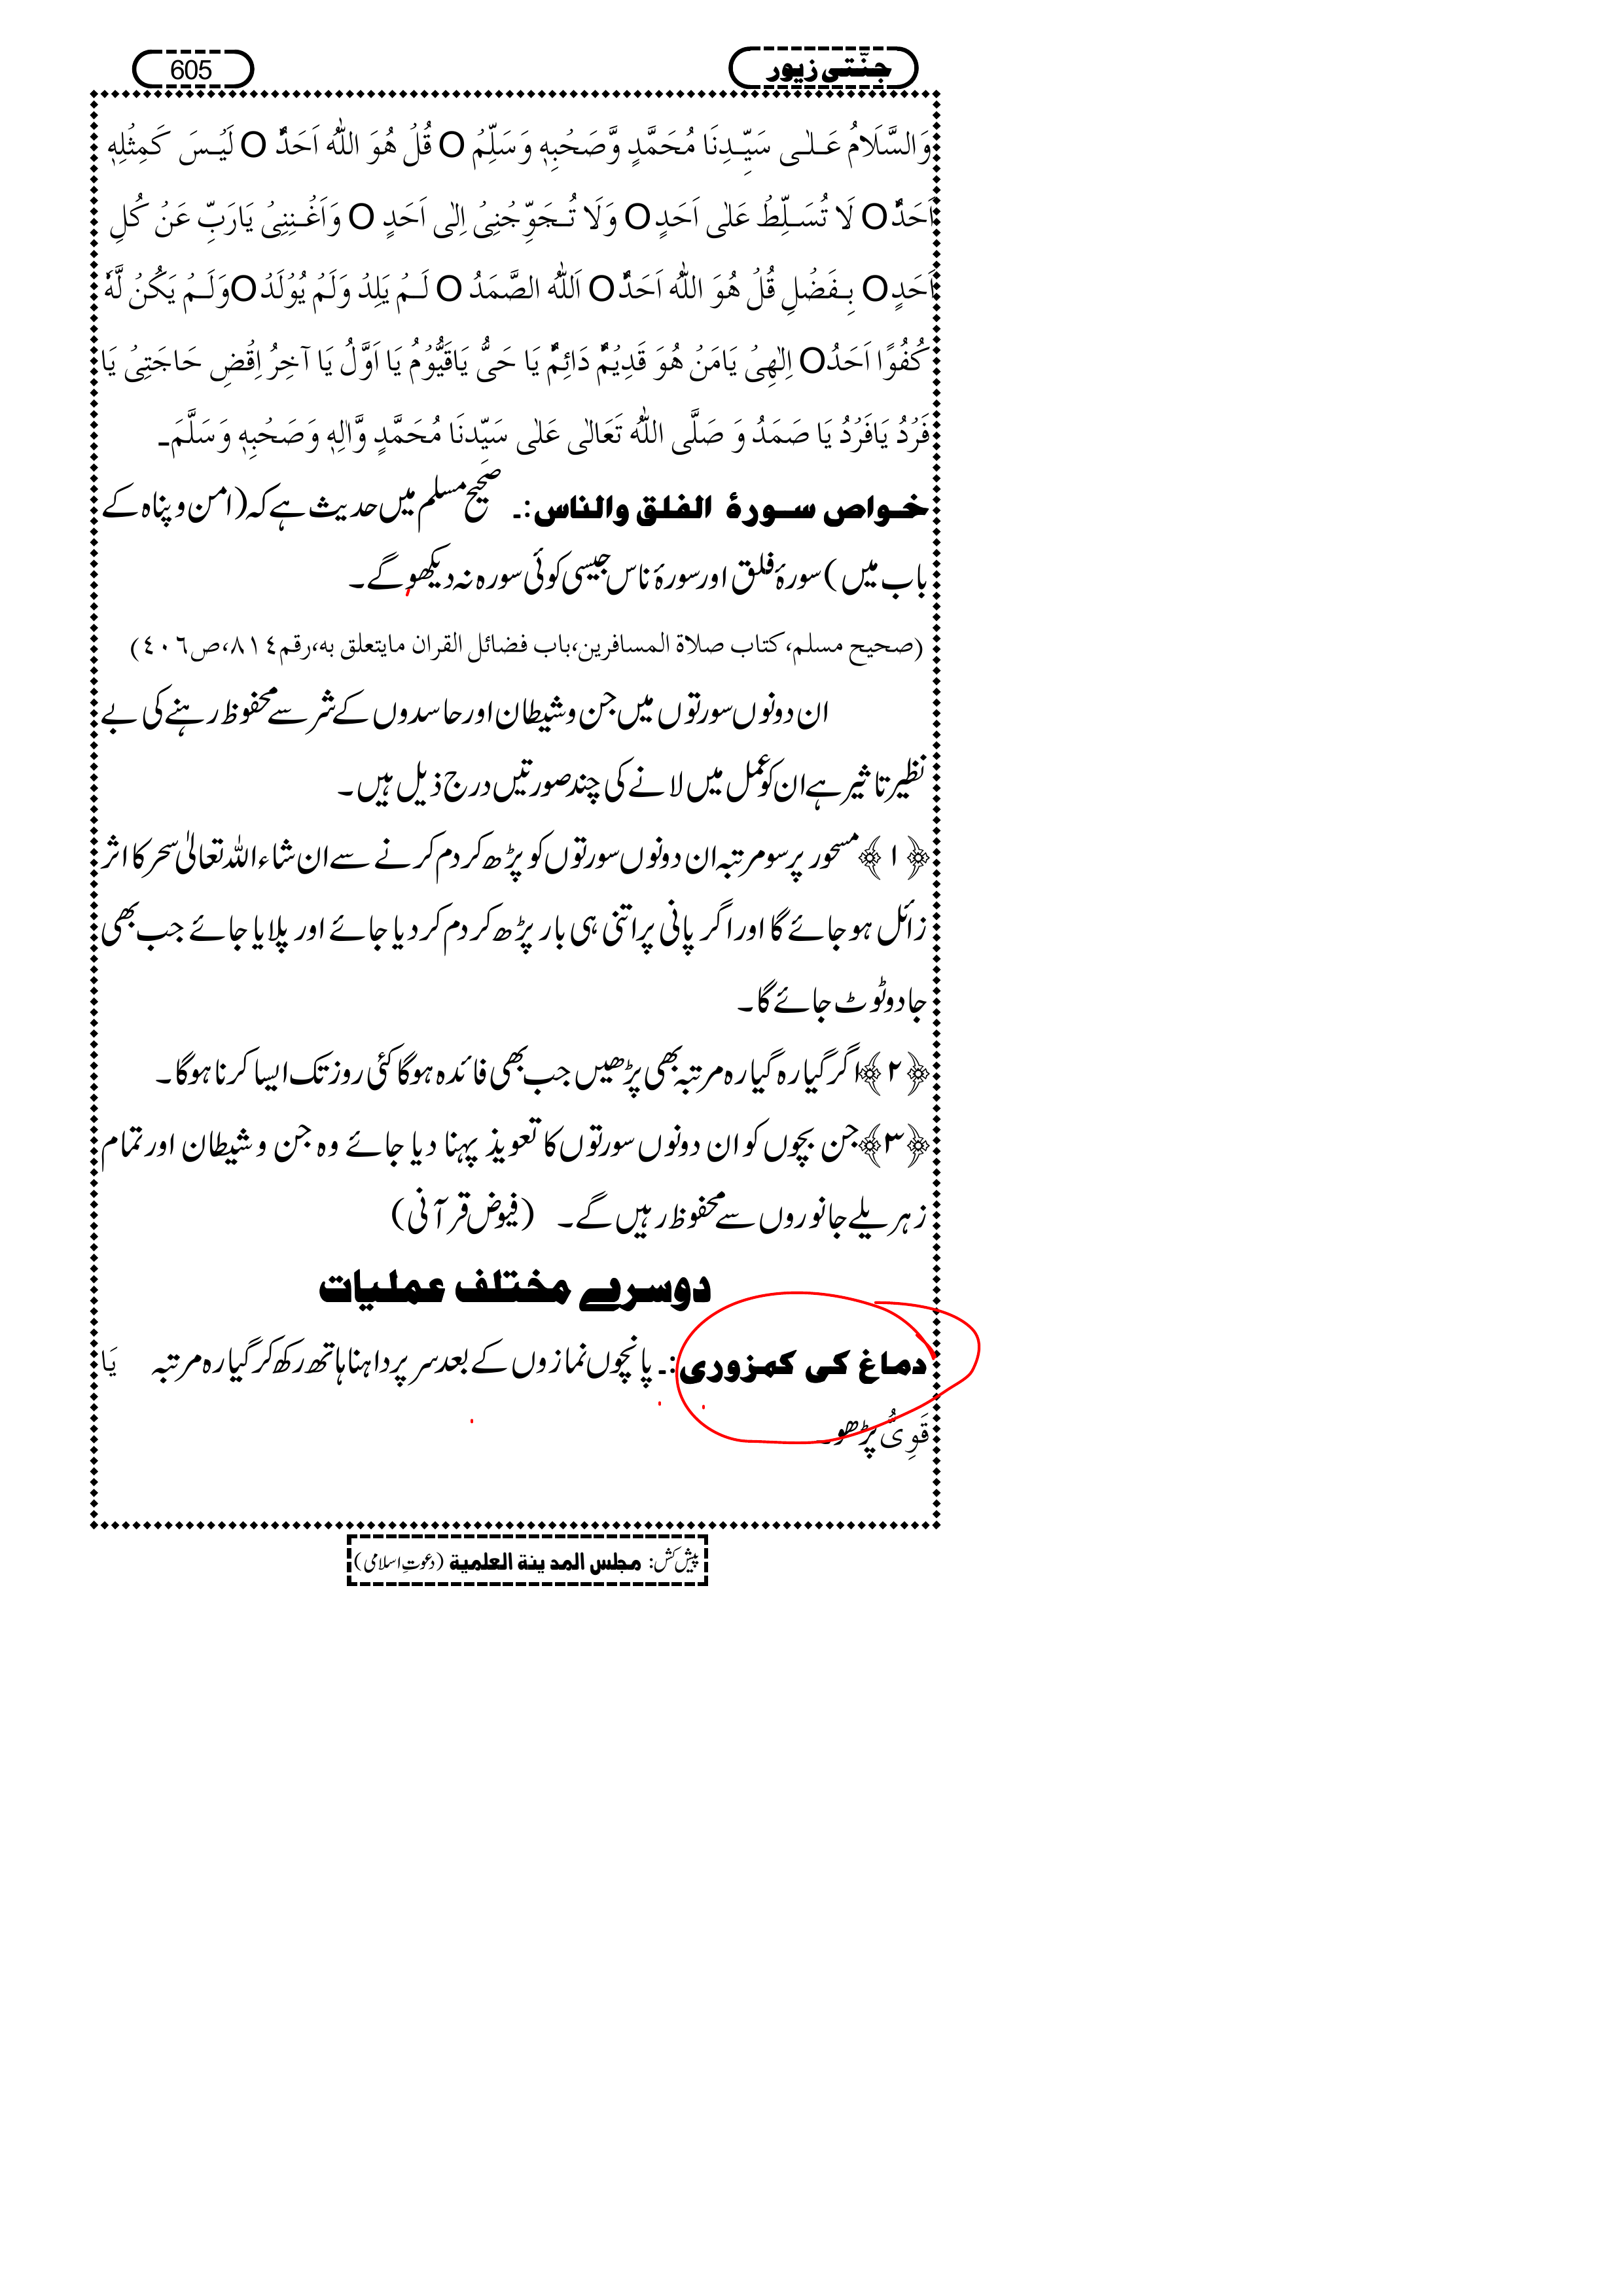 جنّتی زیور
605
وَالسَّلَامُ عَلٰی سَیِّدِنَا مُحَمَّدٍ وَّصَحْبِهٖ وَسَلِّمْ O قُلْ هُوَ اللّٰهُ اَحَدٌ O لَیْسَ كَمِثْلِهٖ
اَحَدٌ O لَا تُسَلِّطْ عَلٰی اَحَدٍ O وَلَا تُحَوِّجْنِیْ اِلٰی اَحَدٍ O وَاَغْنِنِیْ یَارَبِّ عَنْ كُلِّ
اَحَدٍ O بِفَضْلِ قُلْ هُوَ اللّٰهُ اَحَدٌ O اَللّٰهُ الصَّمَدُ O لَمْ یَلِدْ وَلَمْ یُوْلَدْ O وَلَمْ یَكُنْ لَّهٗ
كُفُوًا اَحَدُ O اِلٰهِیْ یَامَنْ هُوَ قَدِیْمٌ دَائِمٌ یَا حَیُّ یَاقَیُّوْمُ یَا اَوَّلُ یَا آخِرُ اِقْضِ حَاجَتِیْ یَا
فَرْدُ یَافَرْدُ یَا صَمَدُ وَ صَلَّی اللّٰهُ تَعَالٰی عَلٰی سَیِّدِنَا مُحَمَّدٍ وَّاٰلِهٖ وَصَحْبِهٖ وَسَلَّمَ۔
خواص سورۂ الفلق والناس:۔ صحیح مسلم میں حدیث ہے کہ (امن و پناہ کے
باب میں) سورۂ فلق اور سورۂ ناس جیسی کوئی سورہ نہ دیکھو گے۔
(صحیح مسلم، کتاب صلاة المسافرین، باب فضائل القران مایتعلق به، رقم ٨١٤، ص ٤٠٦)
ان دونوں سورتوں میں جن و شیطان اور حاسدوں کے شر سے محفوظ رہنے کی بے
نظیر تاثیر ہے ان کو عمل میں لانے کی چند صورتیں درج ذیل ہیں۔
﴿۱﴾ مسحور پر سو مرتبہ ان دونوں سورتوں کو پڑھ کر دم کرنے سے ان شاء اللہ تعالٰی سحر کا اثر
زائل ہو جائے گا اور اگر پانی پر اتنی ہی بار پڑھ کر دم کر دیا جائے اور پلایا جائے جب بھی
جادو ٹوٹ جائے گا۔
﴿۲﴾ اگر گیارہ گیارہ مرتبہ بھی پڑھیں جب بھی فائدہ ہوگا کئی روز تک ایسا کرنا ہوگا۔
﴿۳﴾ جن بچوں کو ان دونوں سورتوں کا تعویذ پہنا دیا جائے وہ جن و شیطان اور تمام
زہریلے جانوروں سے محفوظ رہیں گے۔ (فیوض قرآنی)
دوسرے مختلف عملیات
دماغ کی کمزوری:۔ پانچوں نمازوں کے بعد سر پر داہنا ہاتھ رکھ کر گیارہ مرتبہ یَا
قَوِیُّ پڑھو۔
پیش کش: مجلس المدینة العلمیة (دعوتِ اسلامی)